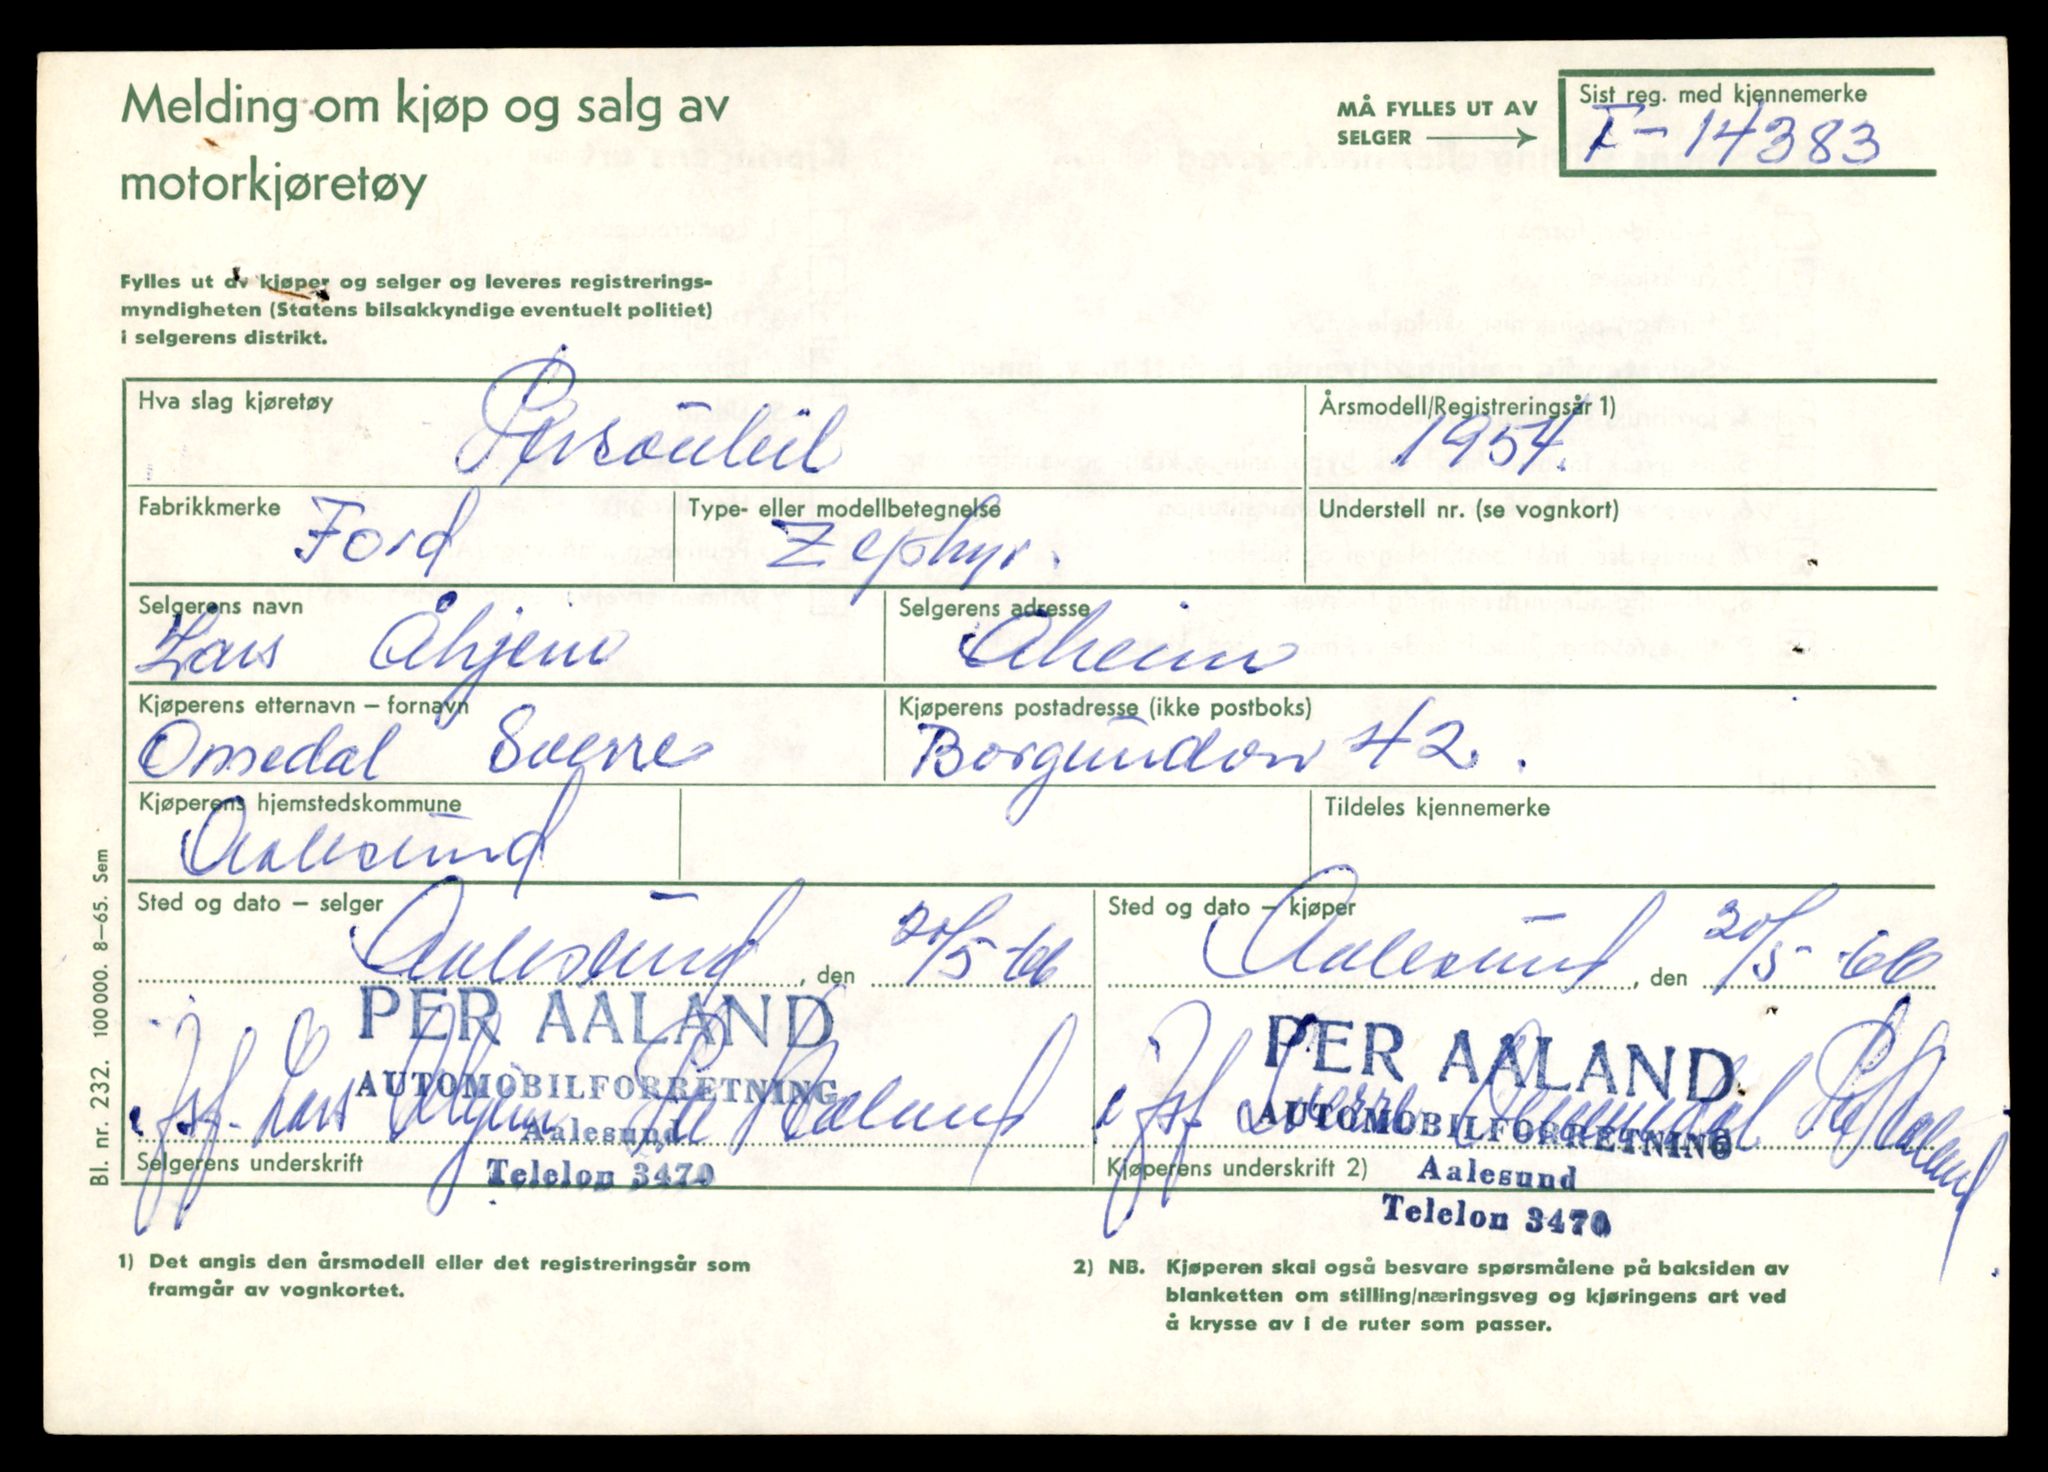 Melding om kjøp og salg av
motorkjøretøy
MÅ FYLLES UT AV
SELGER
Sist reg. med kjennemerke
T-14383
Fylles ut av kjøper og selger og leveres registrerings-
myndigheten (Statens bilsakkyndige eventuelt politiet)
i selgerens distrikt.
Hva slag kjøretøy
Personbil
Årsmodell/Registreringsår 1)
1954.
Fabrikkmerke
Ford
Type- eller modellbetegnelse
Zephyr.
Understell nr. (se vognkort)
Selgerens navn
Lars Åhjem
Selgerens adresse
Åheim
Kjøperens etternavn – fornavn
Omedal Sverre
Kjøperens postadresse (ikke postboks)
Borgundvn 42.
Kjøperens hjemstedskommune
Aalesund
Tildeles kjennemerke
Sted og dato – selger
Aalesund, den 20/5-66
Sted og dato – kjøper
Aalesund, den 20/5-66
PER AALAND
AUTOMOBILFORRETNING
Aalesund
Telefon 3470
Lars Åhjem
Selgerens underskrift
PER AALAND
AUTOMOBILFORRETNING
Aalesund
Telefon 3470
Sverre
Kjøperens underskrift 2)
Bl. nr. 2232. 100 000. 8–65. Sem
1) Det angis den årsmodell eller det registreringsår som
framgår av vognkortet.
2) NB. Kjøperen skal også besvare spørsmålene på baksiden av
blanketten om stilling/næringsveg og kjøringens art ved
å krysse av i de ruter som passer.